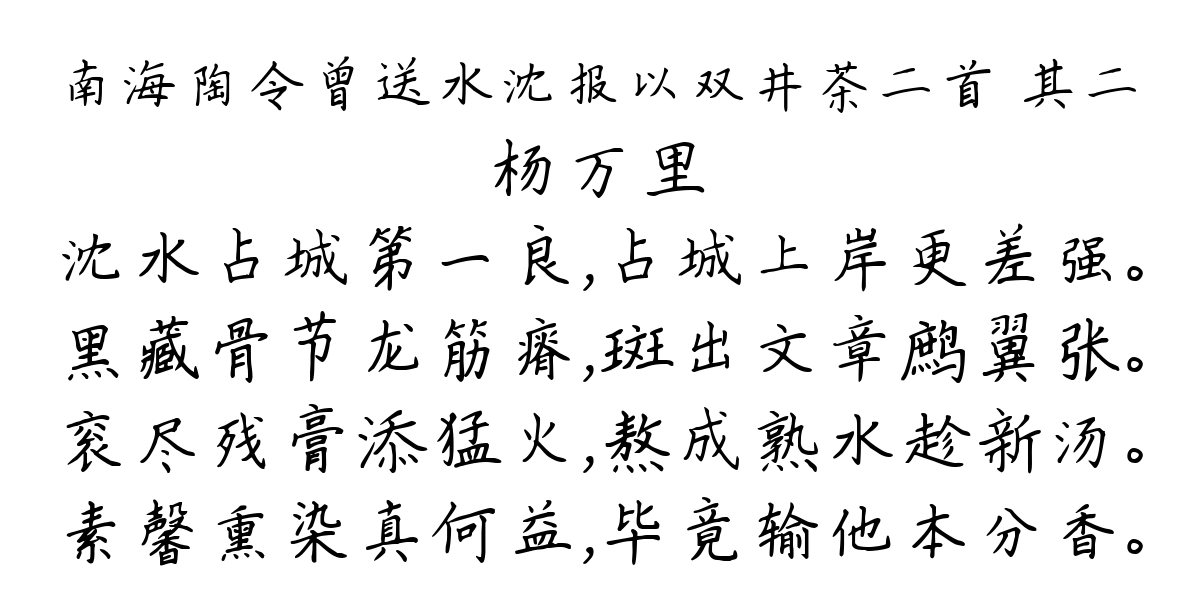 南海陶令曾送水沈报以双井茶二首 其二
杨万里
沈水占城第一良,占城上岸更差强。
黑藏骨节龙筋瘠,斑出文章鹧翼张。
衮尽残膏添猛火,熬成熟水趁新汤。
素馨熏染真何益,毕竟输他本分香。